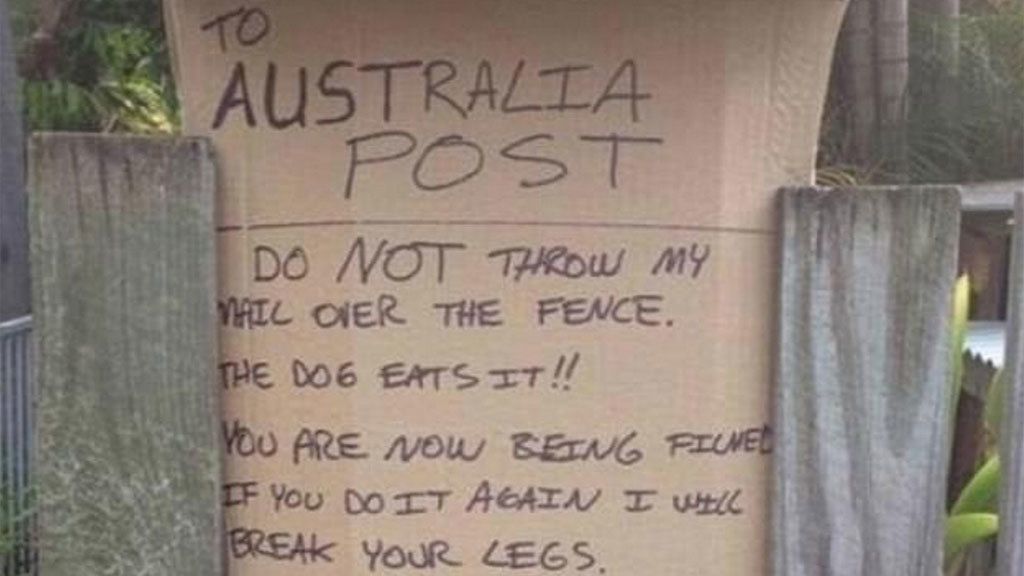 TO
AUSTRALIA
POST
DO NOT THROW MY
MAIL OVER THE FENCE.
THE DOG EATS IT!!
YOU ARE NOW BEING FILMED
IF YOU DO IT AGAIN I WILL
BREAK YOUR LEGS.